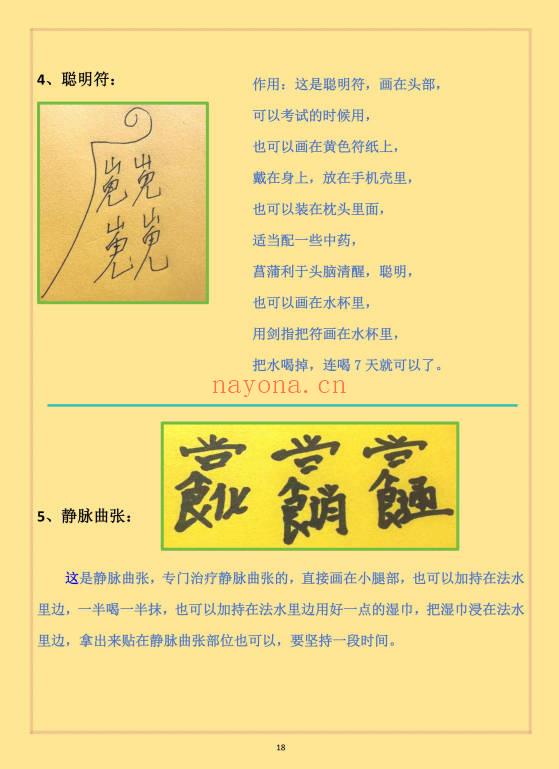 4、聪明符：
作用：这是聪明符，画在头部，
可以考试的时候用，
也可以画在黄色符纸上，
戴在身上，放在手机壳里，
也可以装在枕头里面，
适当配一些中药，
菖蒲利于头脑清醒，聪明，
也可以画在水杯里，
用剑指把符画在水杯里，
把水喝掉，连喝 7 天就可以了。
nayona.cn
5、静脉曲张：
这是静脉曲张，专门治疗静脉曲张的，直接画在小腿部，也可以加持在法水
里边，一半喝一半抹，也可以加持在法水里边用好一点的湿巾，把湿巾浸在法水
里边，拿出来贴在静脉曲张部位也可以，要坚持一段时间。
18